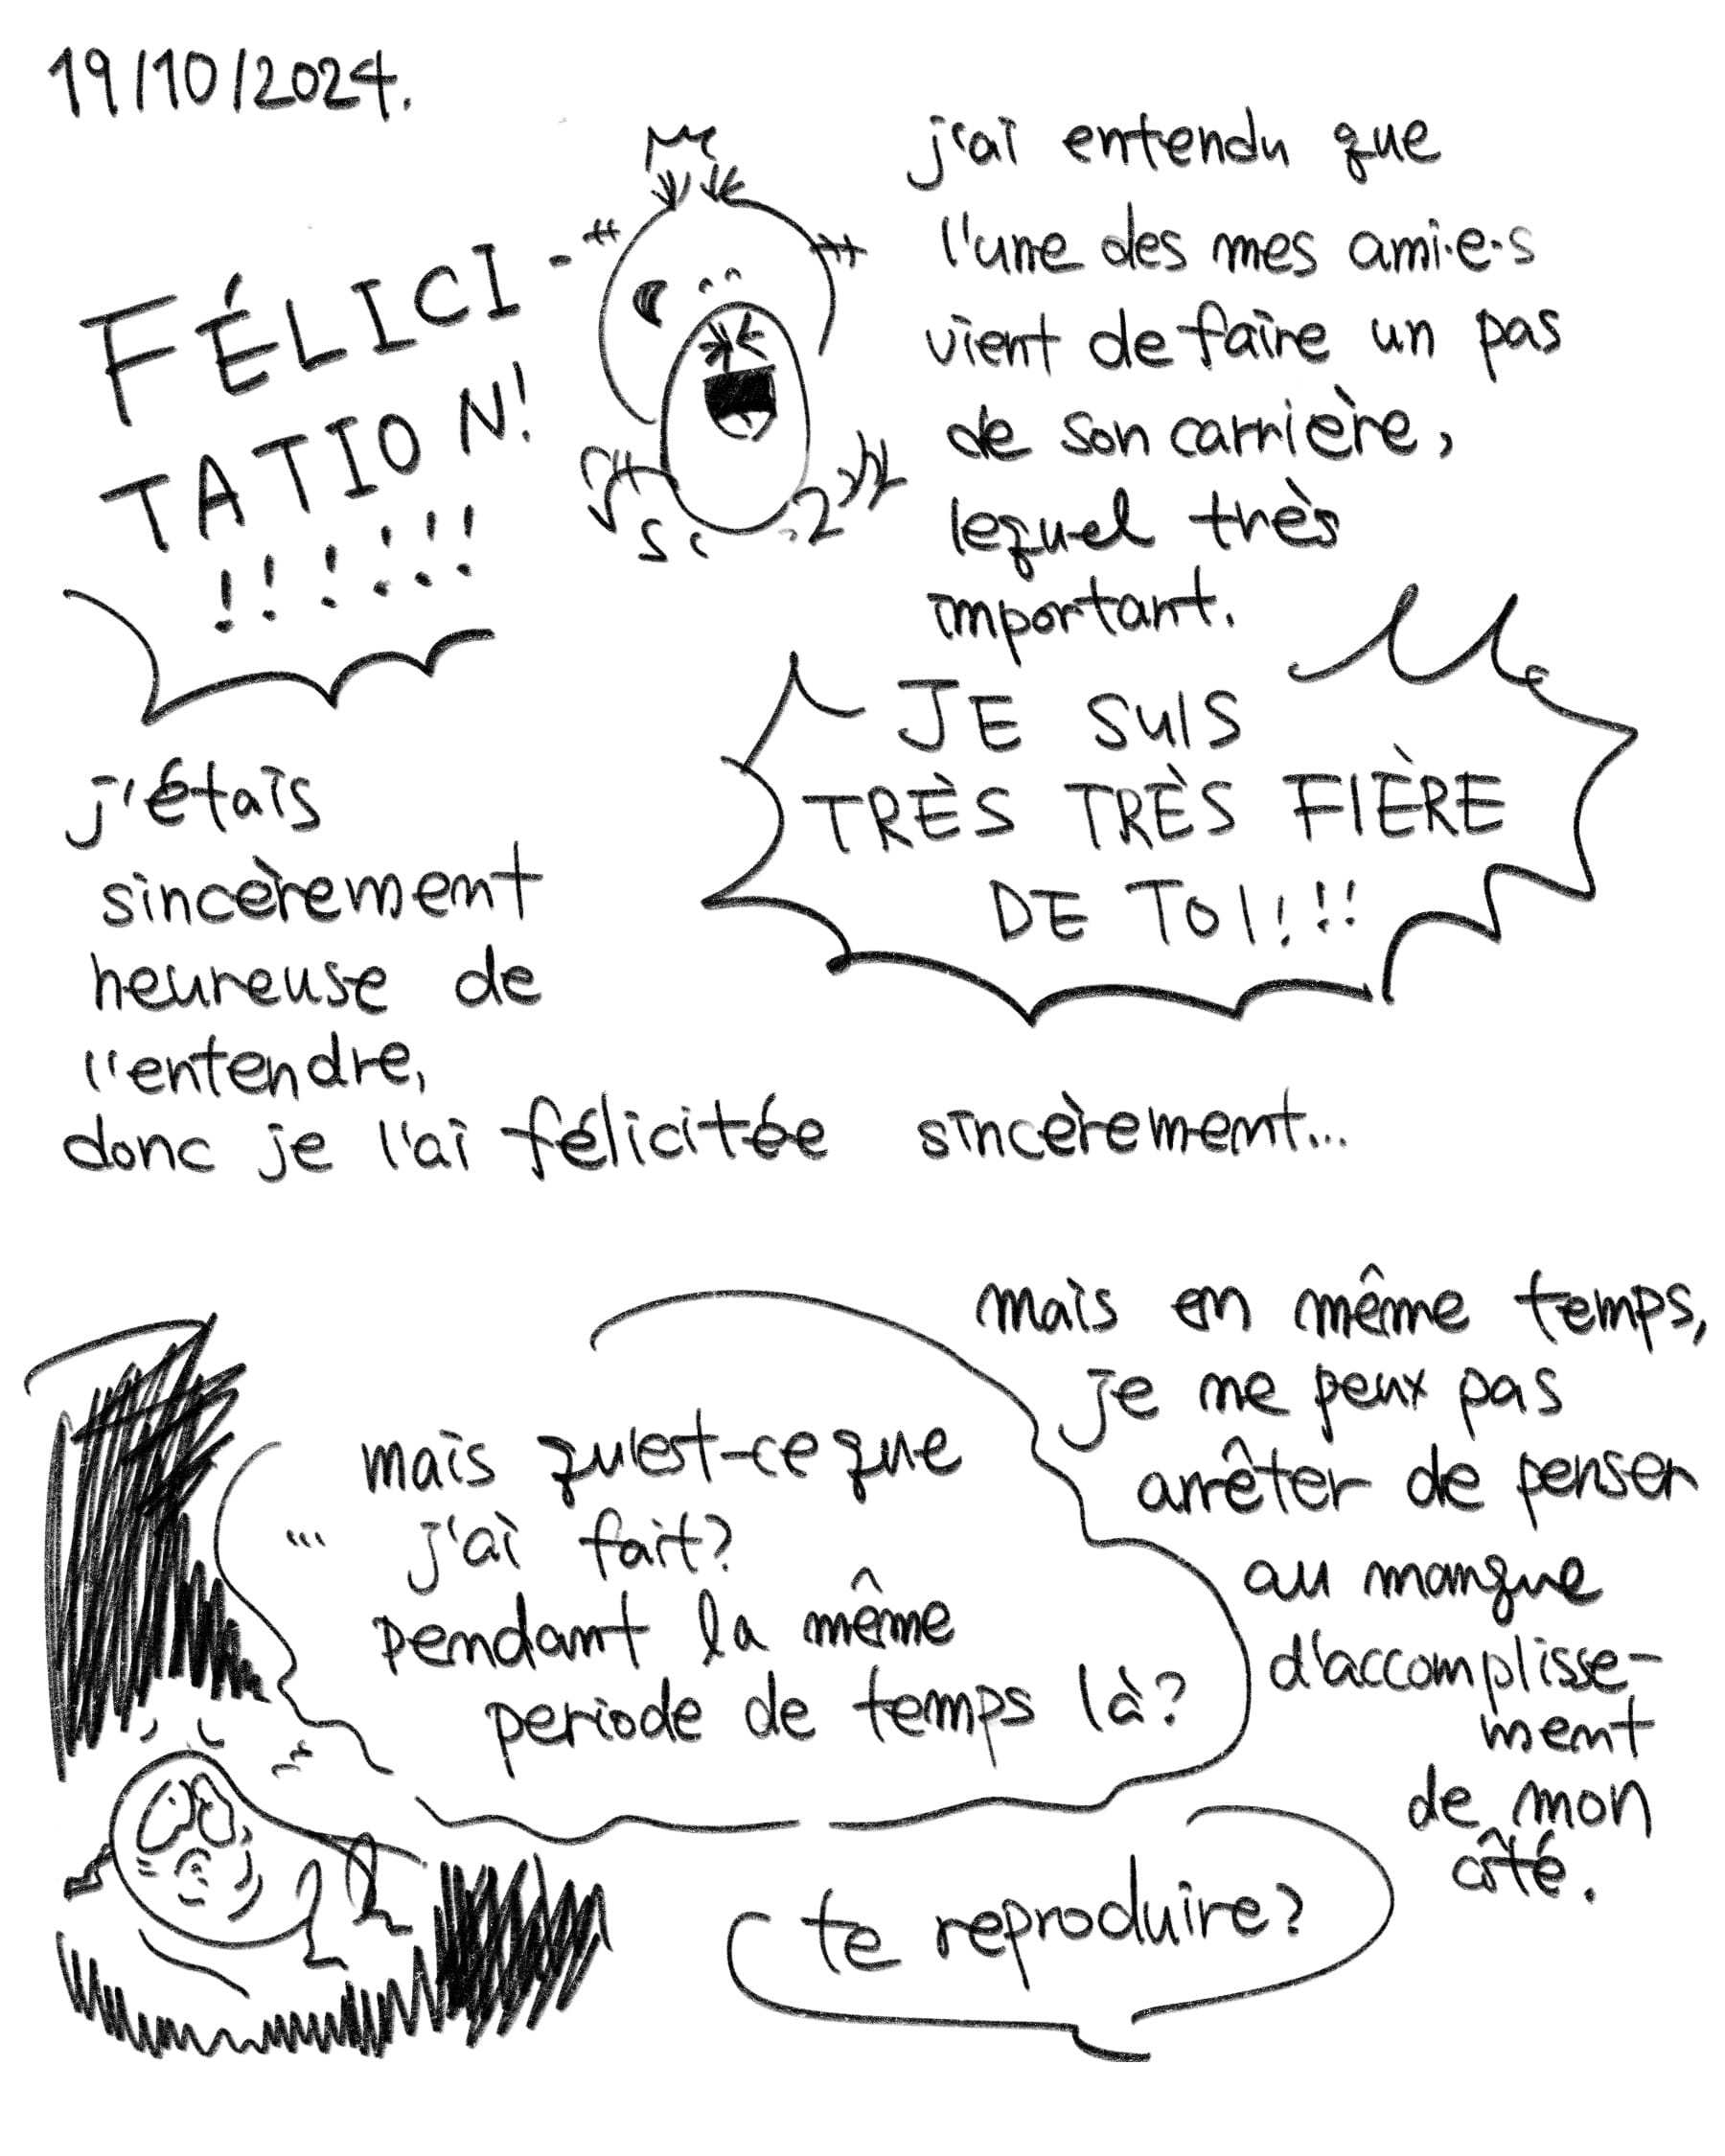 19/10/2024.
j'ai entendu que
l'une des mes ami·e·s
vient de faire un pas
de son carrière,
lequel très
important.
FÉLICI-
TATION!
!!!!!!
JE SUIS
TRÈS TRÈS FIÈRE
DE TOI!!!
j'étais
sincèrement
heureuse de
l'entendre,
donc je l'ai félicitée sincèrement...
mais en même temps,
je ne peux pas
arrêter de penser
au manque
d'accomplisse-
ment
de mon
côté.
mais qu'est-ce que
... j'ai fait?
pendant la même
periode de temps là?
te reproduire?